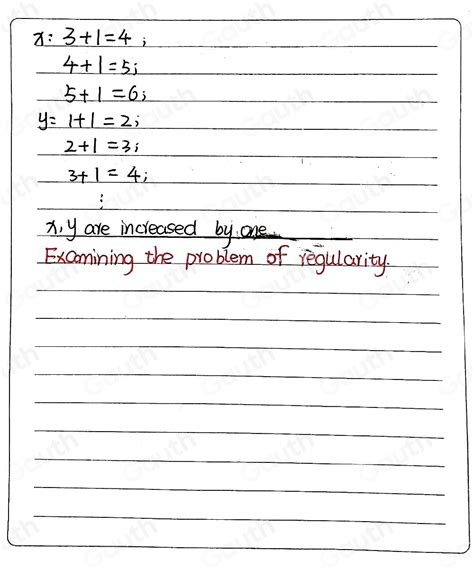 x: 3+1=4;
4+1=5;
5+1=6;
y= 1+1=2;
2+1=3;
3+1=4;
⋮
x,y are increased by one
Examining the problem of regularity.